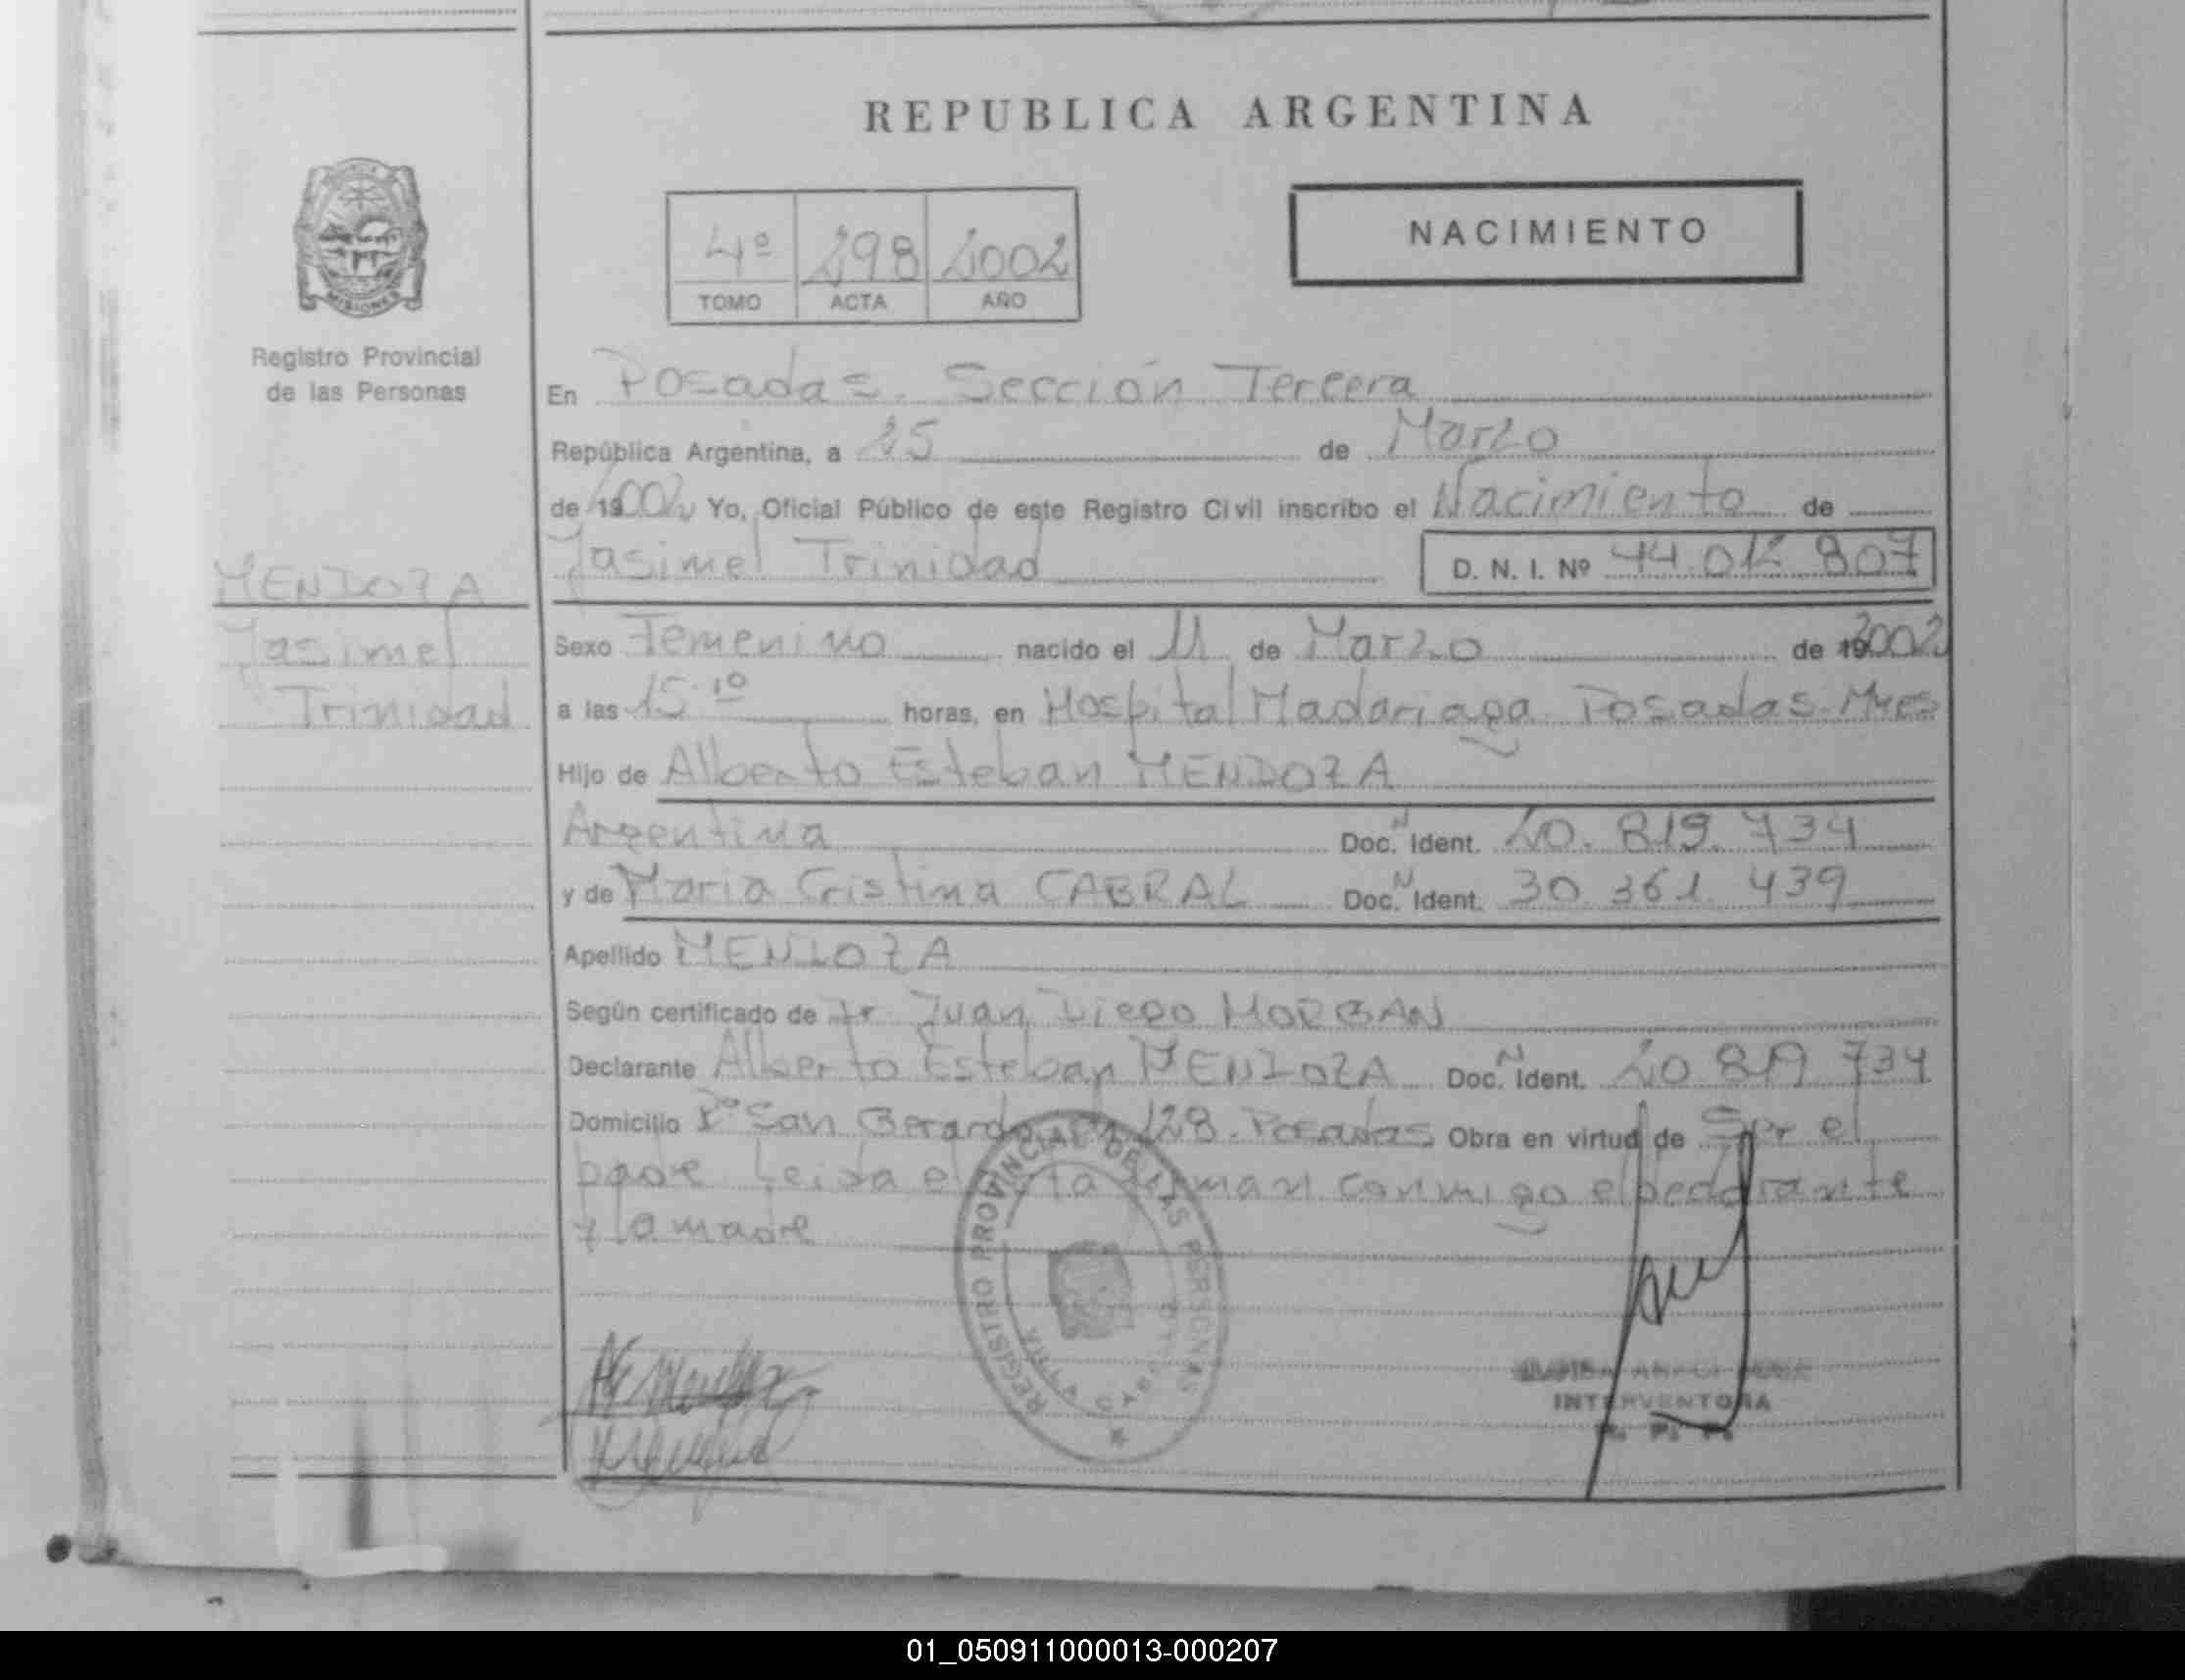 REPUBLICA ARGENTINA
NACIMIENTO
4º 298 2002
TOMO ACTA AÑO
MISIONES
Registro Provincial
de las Personas
En Posadas. Sección Tercera
República Argentina, a 25 de Marzo
de 192002 Yo, Oficial Público de este Registro Civil inscribo el Nacimiento de
Jasimel Trinidad D. N. I. Nº 44.012 807
MENDOZA
Jasimel
Trinidad
Sexo Femenino nacido el 11 de Marzo de 192002
a las 15.10 horas, en Hospital Madariaga Posadas. Mnes
Hijo de Alberto Esteban MENDOZA
Argentina Doc. N Ident. 20. 819. 734
y de Maria Cristina CABRAL Doc. N Ident. 30. 361. 439
Apellido MENDOZA
Según certificado de Dr. Juan Diego MORGAN
Declarante Alberto Esteban MENDOZA Doc. N Ident. 20 819 734
Domicilio Bº San Gerardo 128. Posadas Obra en virtud de Ser el
padre Leida el acta firman conmigo el declarante
y la madre
REGISTRO PROVINCIAL DE LAS PERSONAS
INTERVENTORA
R. P. P.
01_050911000013-000207